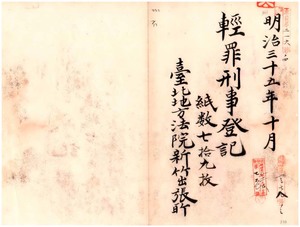 明治三十五年十月
輕罪刑事登記
紙数七拾九枚
臺北地方法院新竹出張所